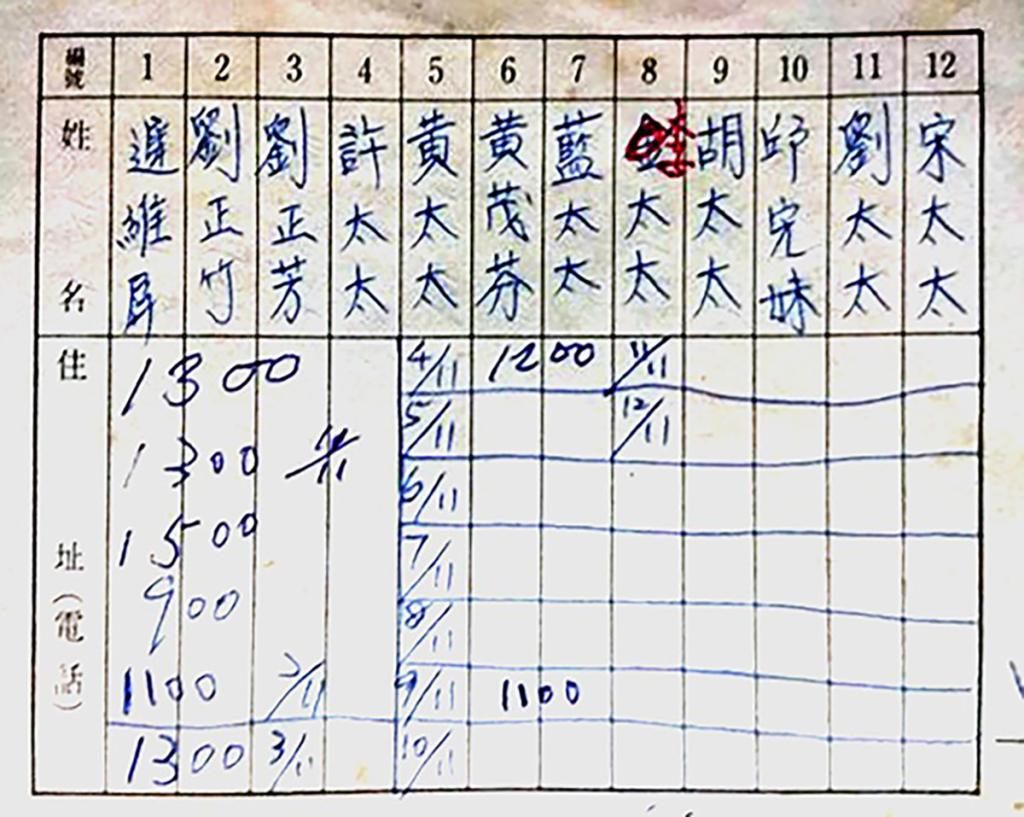 編號 1 2 3 4 5 6 7 8 9 10 11 12
姓名
維
劉正竹
劉正芳
許太太
黃太太
黃茂芬
藍太太
李太太
胡太太
邱完妹
劉太太
宋太太
住址（電話）
1300
1300
1500
900
1100 2/11
1300 3/11
4/11 1200 11/11
5/11 12/11
6/11
7/11
8/11
9/11 1100
10/11